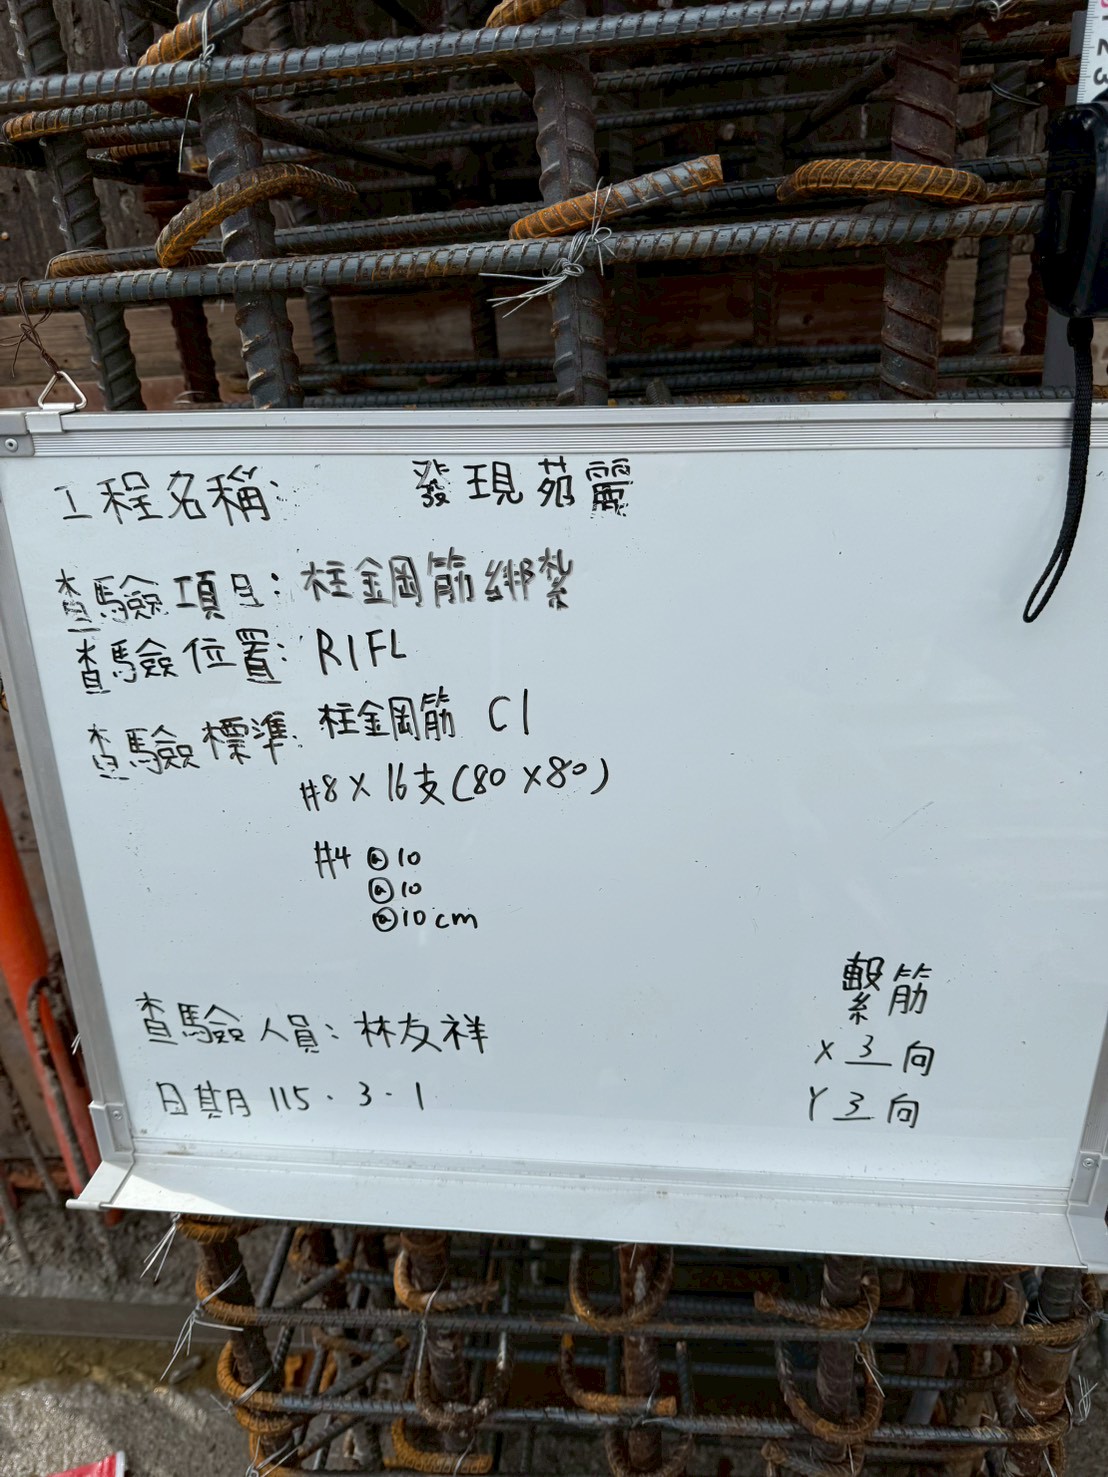 工程名稱: 發現苑麗
查驗項目: 柱鋼筋綁紮
查驗位置: R1FL
查驗標準: 柱鋼筋 C1
#8 X 16支(80 X 80)
#4 @10
@10
@10cm
繫筋
X 3 向
Y 3 向
查驗人員: 林友祥
日期 115. 3. 1
2 3